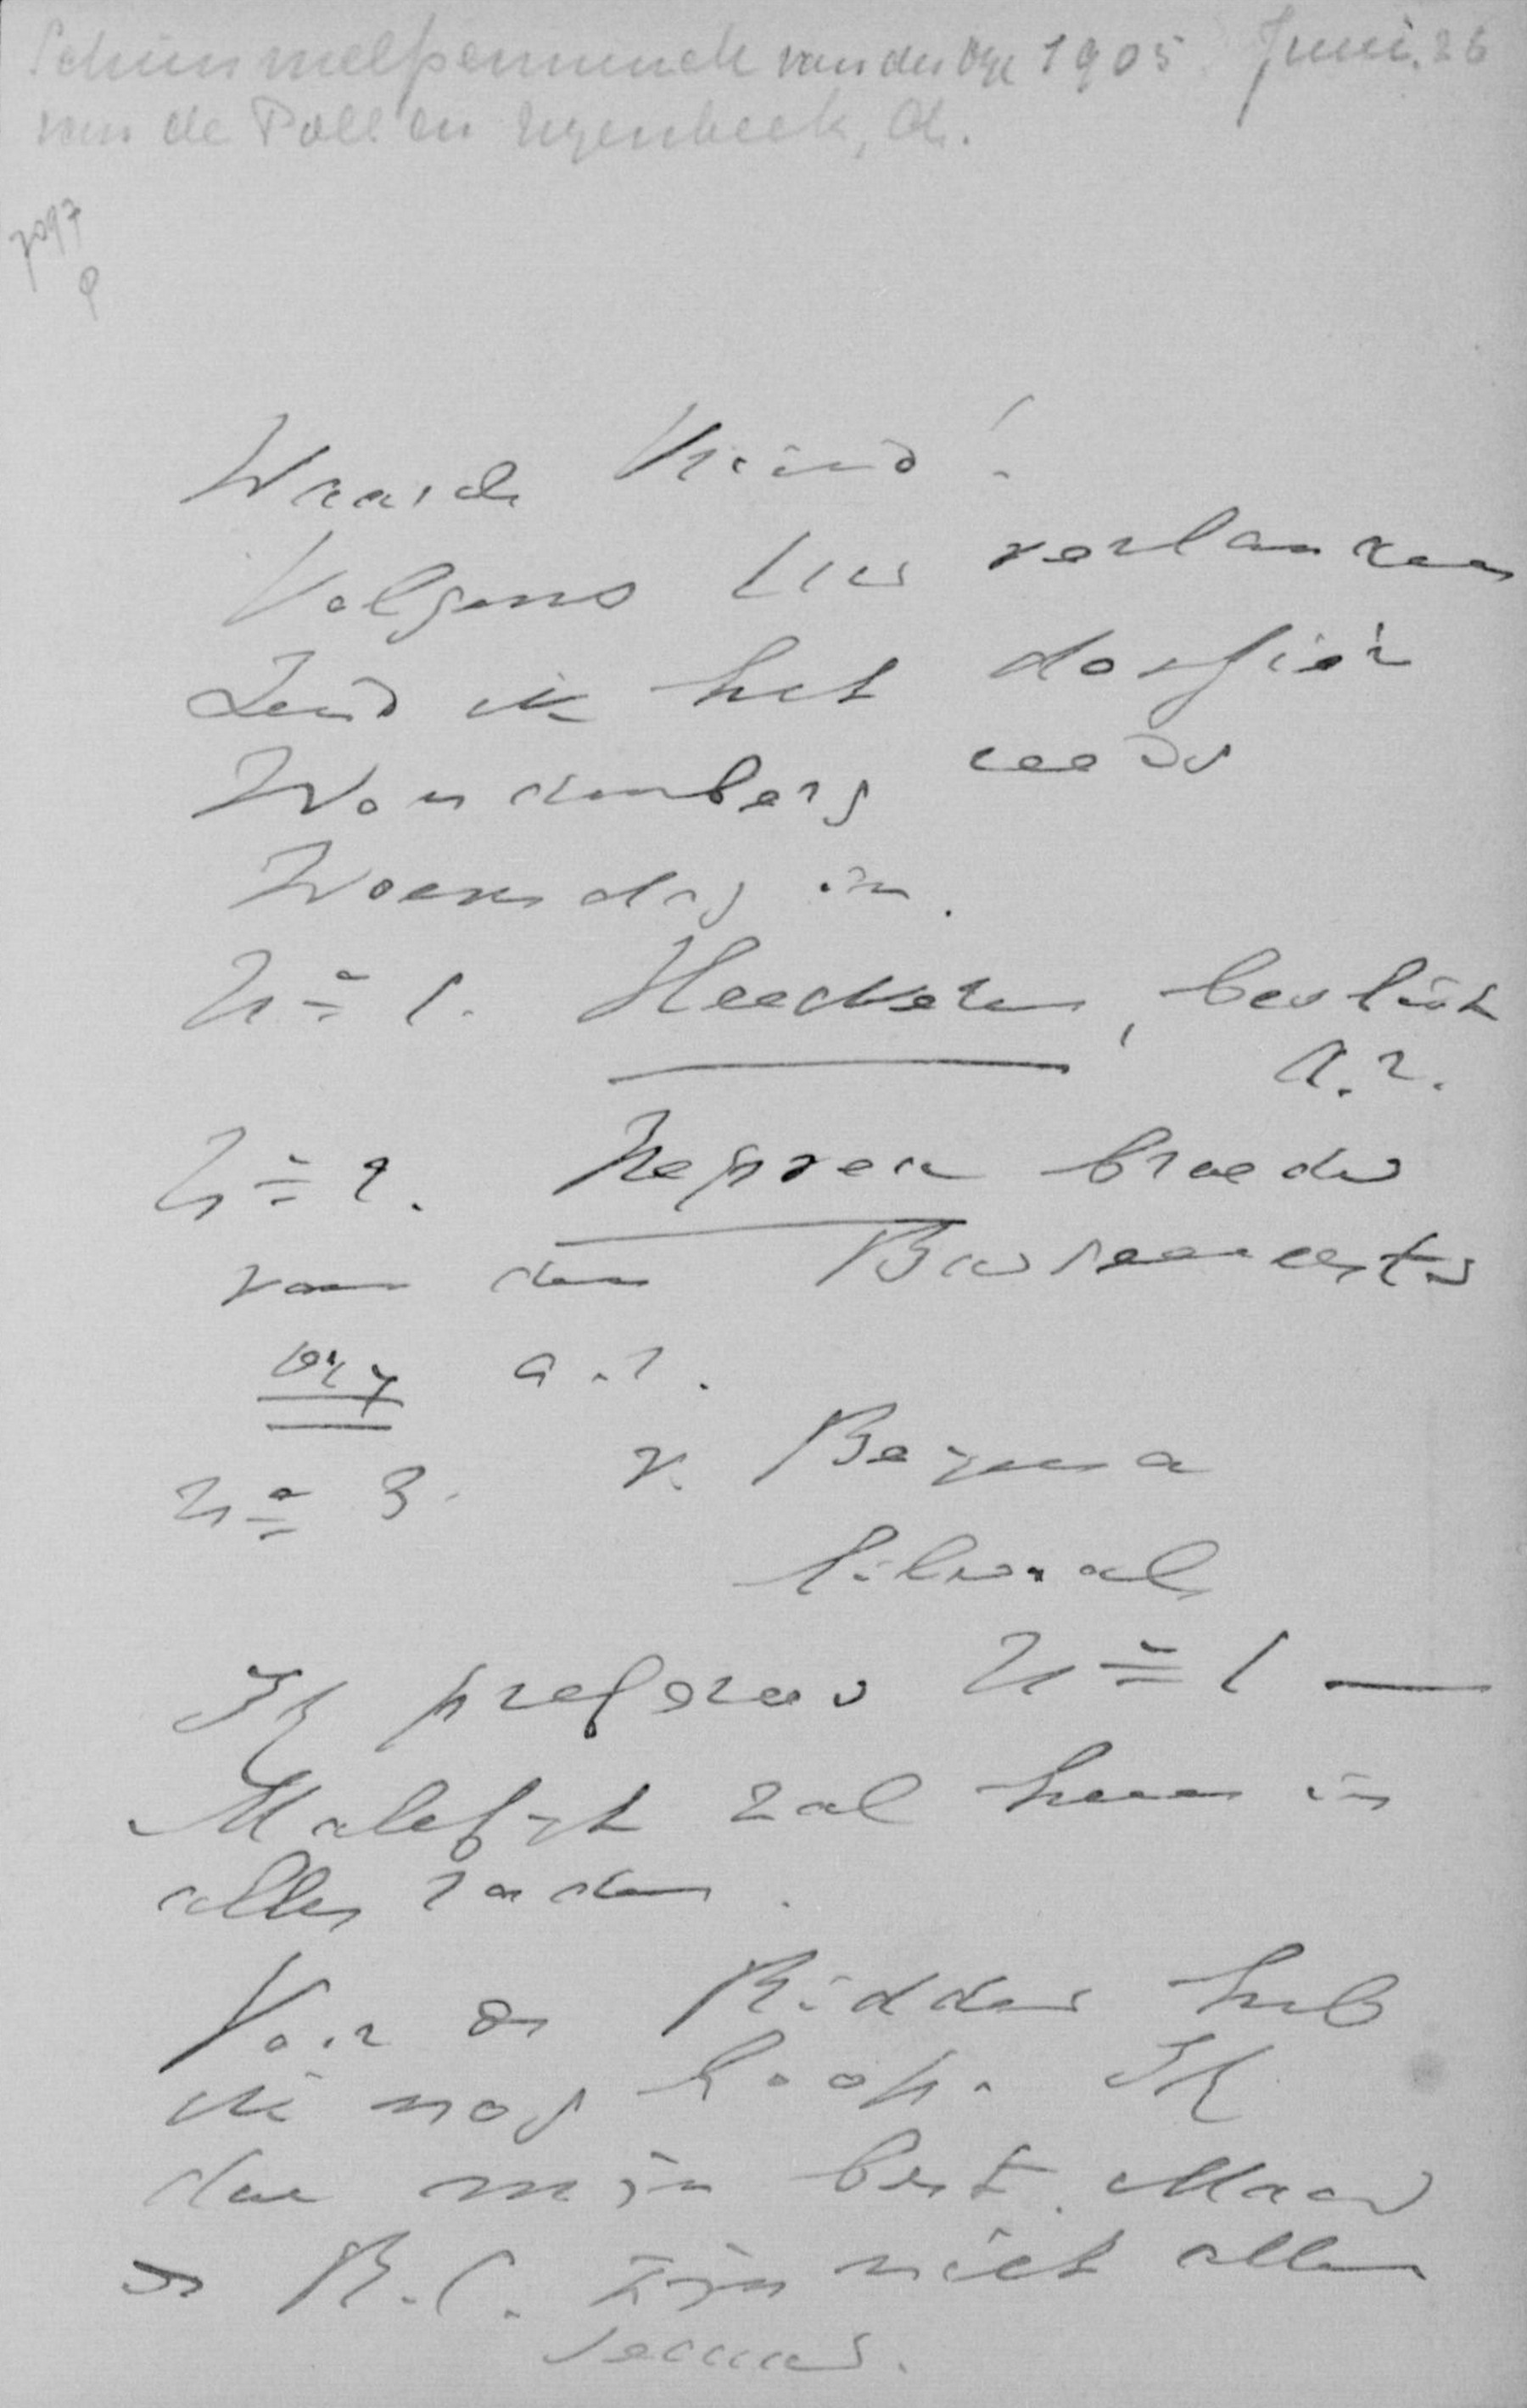 Schimmelpenninck van der Oye 1905 Juni. 26
van de Poll en Nyenbeek, A.
7097
Waarde Vriend!
Volgens Uw verlangen
Zend ik het dossier
Woudenberg reeds
Woensdag in.
No 1. Heeckeren, beslist
a.r.
No 2. Repren broeder
van den Burgemeester
vrij a.r.
No 3. v. Beyma
liberaal
Ik prefereer No 1 —
Malefijt zal hem in
alles raden.
Voor de Ridder heb
ik nog hoop. Ik
doe mijn best. Maar
de R.C. zijn niet allen
secuur.